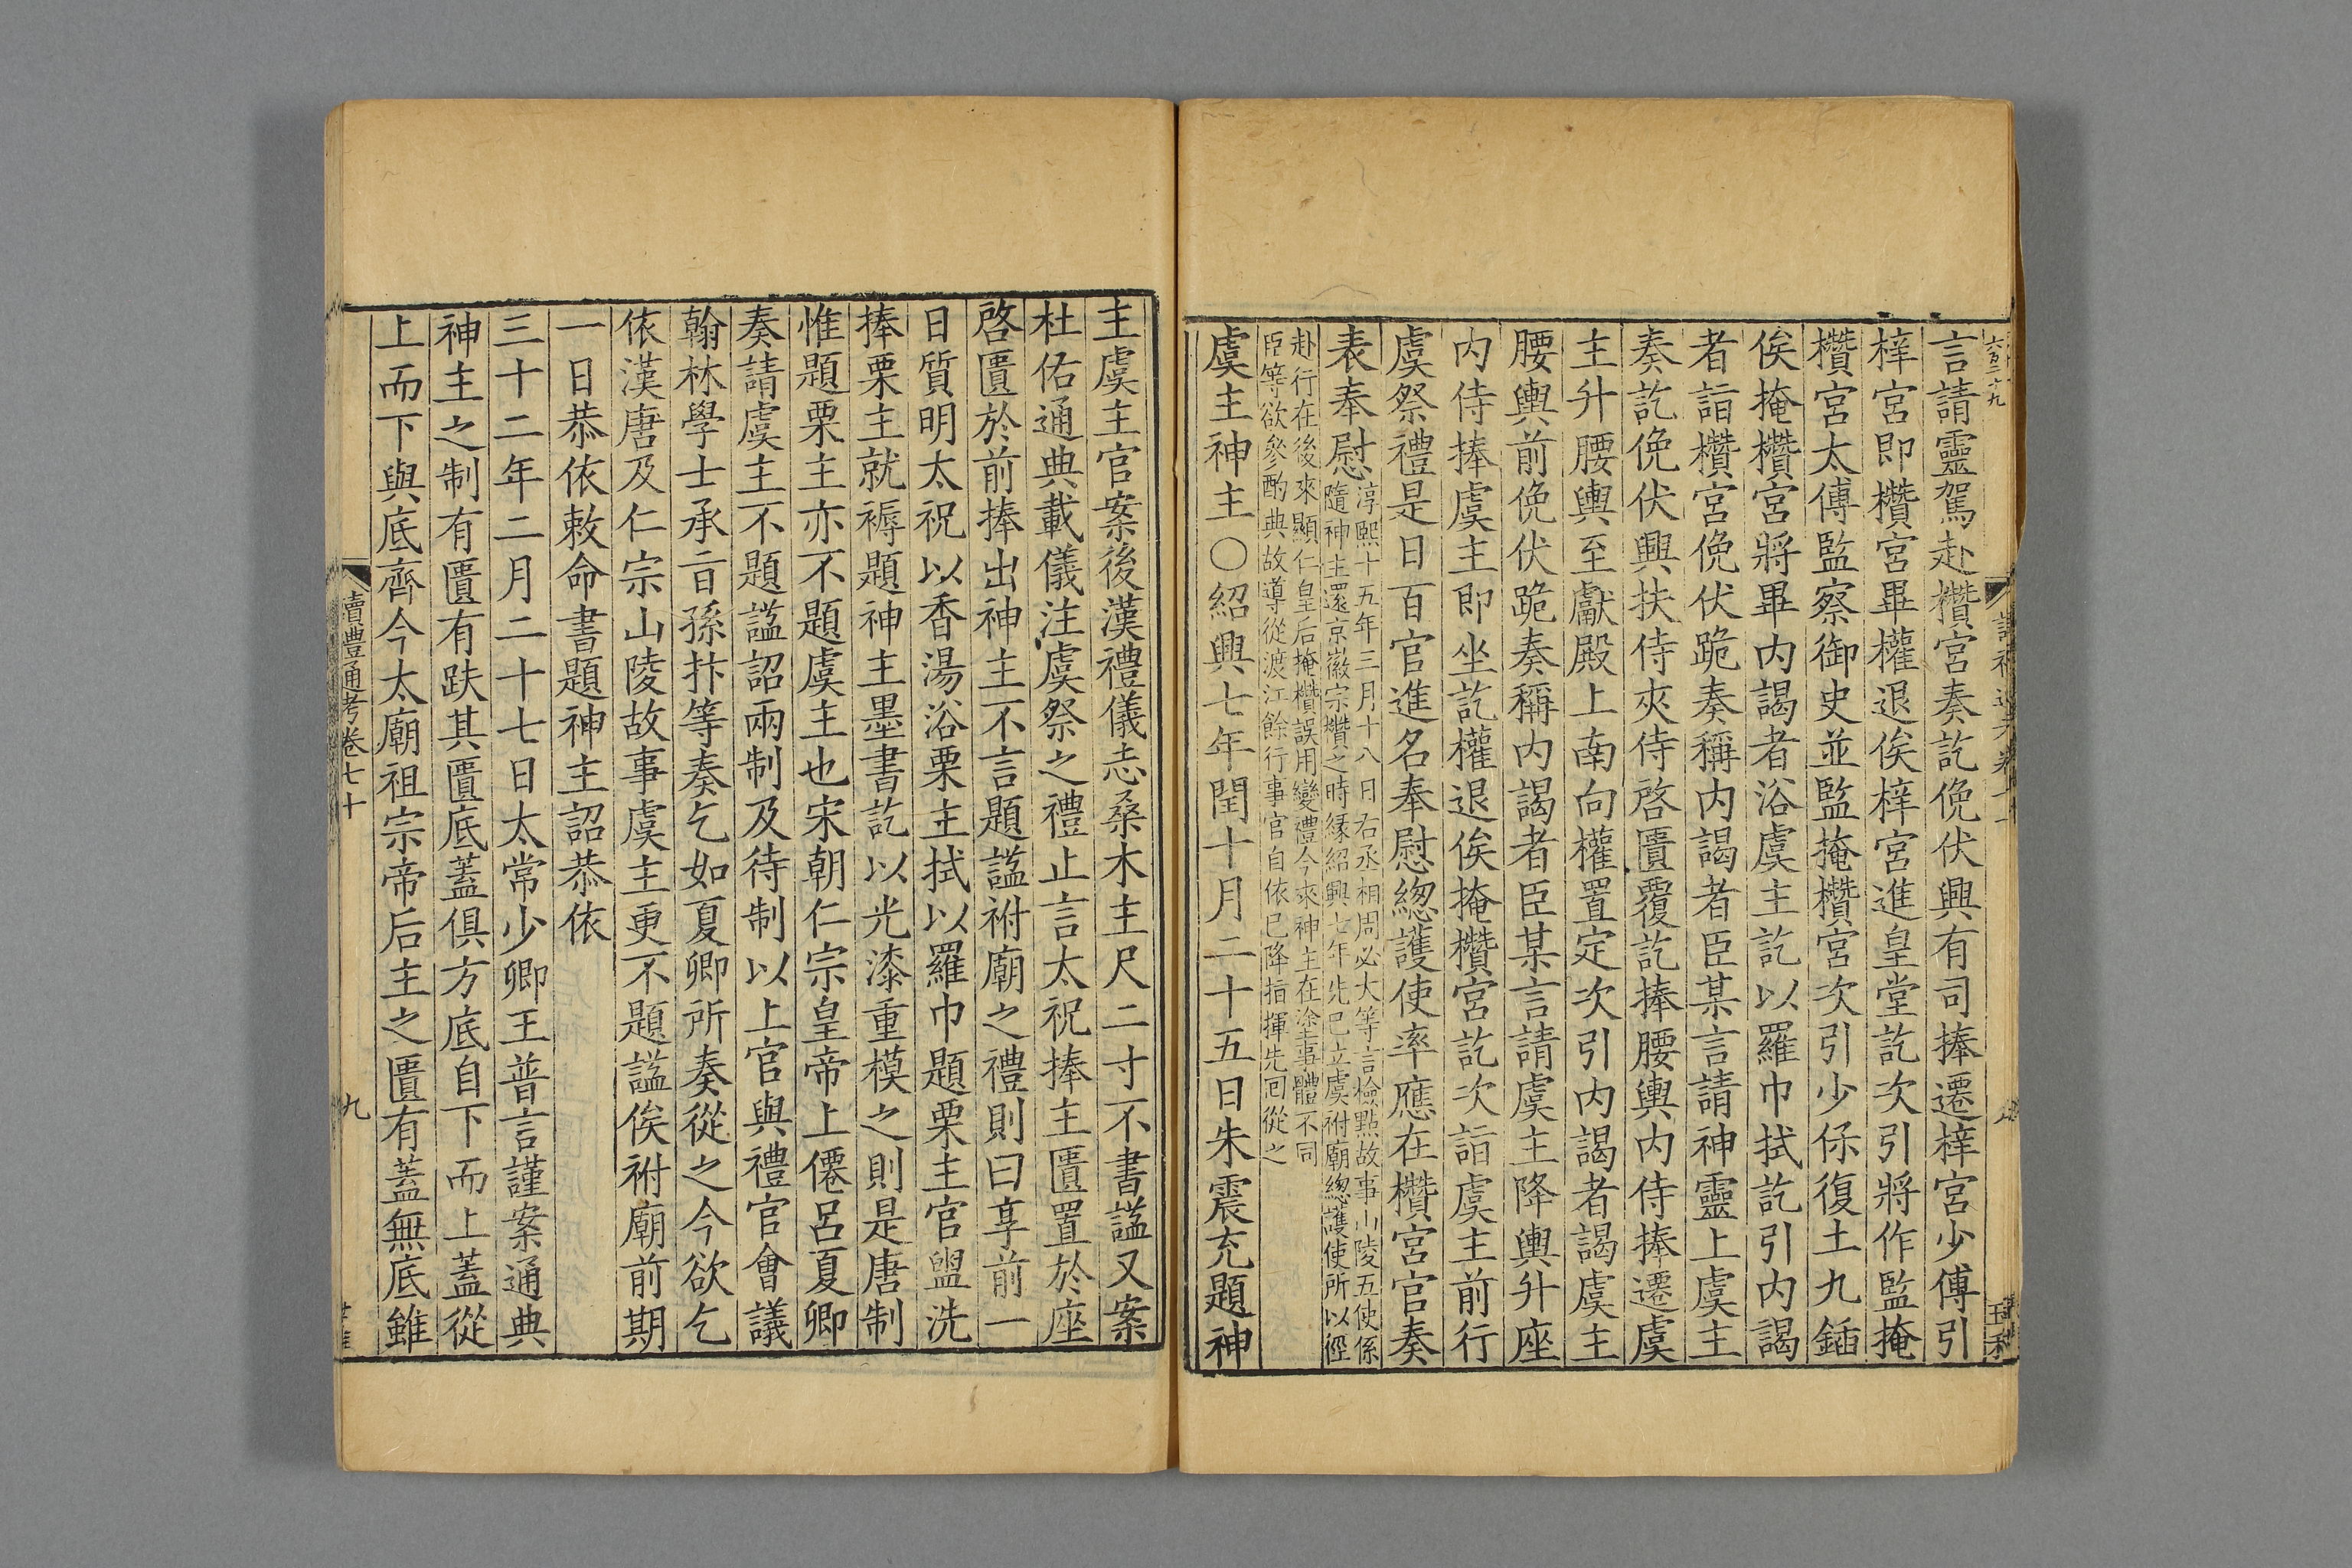 言請靈駕赴欑宮奏訖俛伏興有司捧遷梓宮少傅引
梓宮即欑宮畢權退俟梓宮進皇堂訖次引將作監掩
欑宮太傅監察御史並監掩欑宮次引少保復土九鍤
俟掩欑宮將畢內謁者浴虞主訖以羅巾拭訖引內謁
者詣欑宮俛伏跪奏稱內謁者臣某言請神靈上虞主
奏訖俛伏興扶侍夾侍啓匱覆訖捧腰輿內侍捧遷虞
主升腰輿至獻殿上南向權置定次引內謁者謁虞主
腰輿前俛伏跪奏稱內謁者臣某言請虞主降輿升座
內侍捧虞主即坐訖權退俟掩欑宮訖次詣虞主前行
虞祭禮是日百官進名奉慰緫護使率應在欑宮官奏
表奉慰淳熙十五年三月十八日右丞相周必大等言檢點故事山陵五使係
隨神主還京徽宗欑之時緣紹興七年先已立虞祔廟緫護使所以徑
赴行在後來顯仁皇后掩欑誤用變禮今來神主在塗事體不同
臣等欲參酌典故導從渡江餘行事官自依已降指揮先回從之
虞主神主○紹興七年閏十月二十五日朱震充題神
主虞主官案後漢禮儀志桑木主尺二寸不書諡又案
杜佑通典載儀注虞祭之禮止言太祝捧主匱置於座
啓匱於前捧出神主不言題諡祔廟之禮則曰享前一
日質明太祝以香湯浴栗主拭以羅巾題栗主官盥洗
捧栗主就褥題神主墨書訖以光漆重模之則是唐制
惟題栗主亦不題虞主也宋朝仁宗皇帝上僊呂夏卿
奏請虞主不題諡詔兩制及待制以上官與禮官會議
翰林學士承旨孫抃等奏乞如夏卿所奏從之今欲乞
依漢唐及仁宗山陵故事虞主更不題諡俟祔廟前期
一日恭依敕命書題神主詔恭依
三十二年二月二十七日太常少卿王普言謹案通典
神主之制有匱有趺其匱底蓋俱方底自下而上蓋從
上而下與底齊今太廟祖宗帝后主之匱有蓋無底雖
讀禮通考卷七十
九